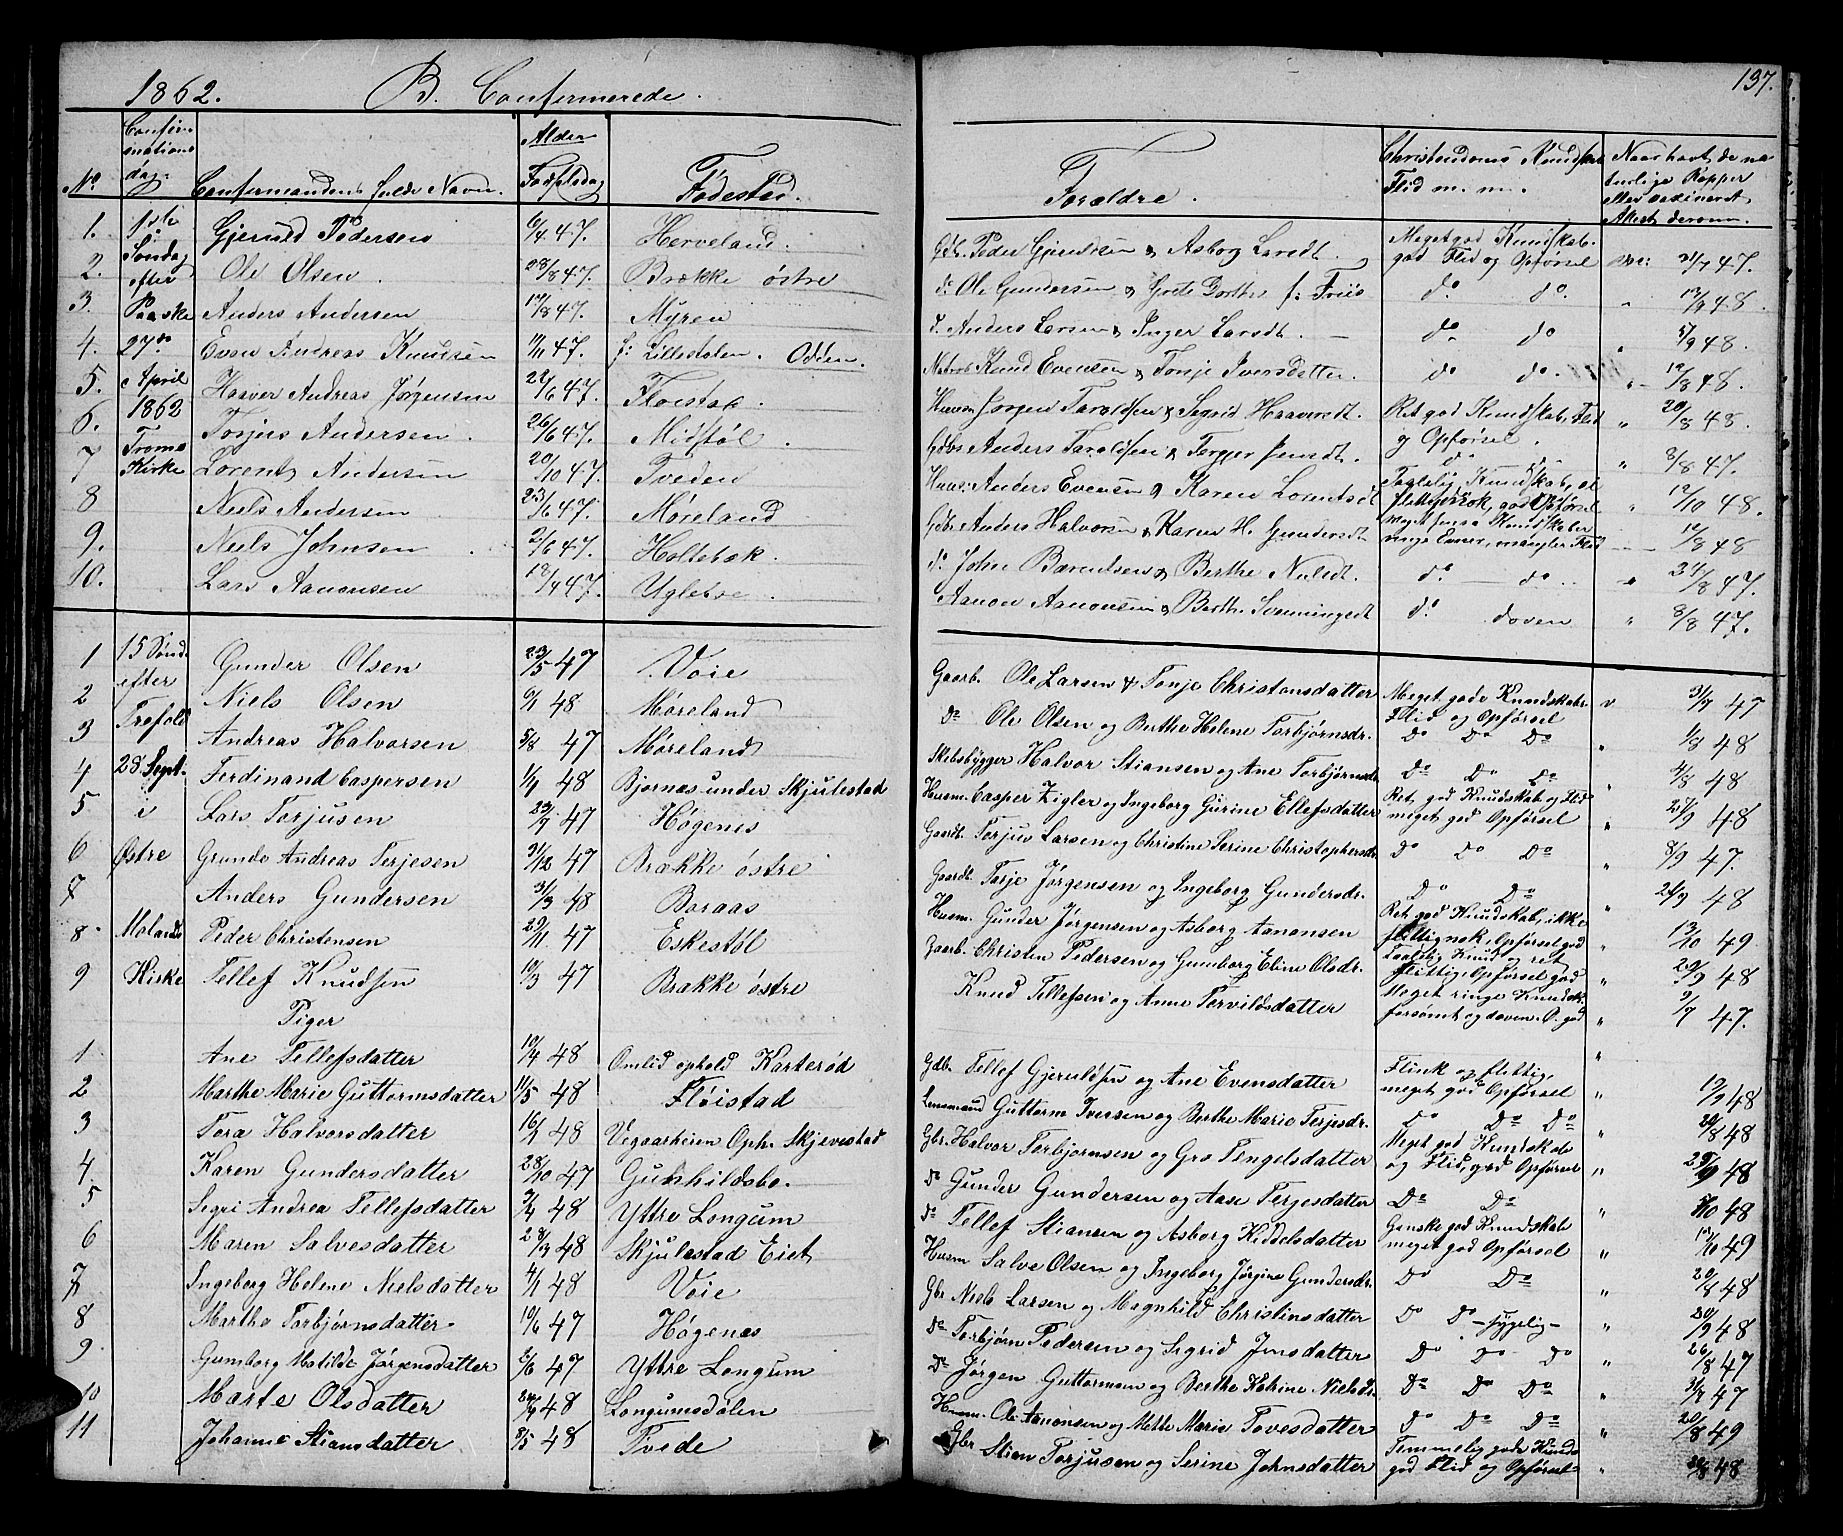 1862. B. Confirmerede. 137.
No. Confirmations dag. Confirmandens fulde Navn. Alder Fødselsdag Fødested. Forældre. Christendoms Kundskab Flid m. m. Naar havt de naturlige Kopper eller vaccineret Attest derom.
1. 1ste Gjeruld Pedersen 6/4 47. Herveland. Gdb. Peder Gjeruldsen & Asborg Larsdt. Meget god Kundskab. god Flid og Opførsel 31/7 47.
2. Søndag efter Ole Olsen 28/8 47. Brække østre do Ole Gundersen & Grete Dorthe f: Friis do. do. 13/9 48.
3. Paaske Anders Andersen 19/8 47. Myren d. Anders Larsen & Inger Larsdt. do. do 5/9 48.
4. 27de Even Andreas Knudsen 11/11 47. f: Lillestølen. Odden. Knud Evensen & Tonje Iversdatter. do do. 12/8 48.
5. April Haaver Andreas Jørgensen 22/6 47. Fløistad. Huusm Jørgen Taraldsen & Sigrid Haaversdt. Ret god Kundskab, Flid og Opførsel. 20/8 48.
6. 1862 Torjus Andersen. 26/6 47. Midtbøl. Gdbr Anders Taraldsen & do. 8/8 47.
7 Tromø Kirke Lorents Andersen 20/10 47. Tveden Huus: Anders Evensen & Karen Lorentsdt Taalelig Kundskab, ei flittig nok, god Opførsel 12/10 48.
8 Niels Andersen 23/6 47. Møreland Gdbr Anders Halvorsen & Karen H. Gundersdt Kundskaber ringe Evner, mangler Flid 12/8 48
9. Niels Johnsen 2/6 47. Holtebæk. do John Berentsen & Berthe Nielsdt. do. do. 24/8 47.
10. Lars Aanonsen 18/9 47. Uglebøe. Aanon Aanonsen & Berthe Svenningsdt do. doven 8/8 47.
1 15 Sønd. Gunder Olsen 23/5 47 Voie Gaarb. Ole Larsen & Tonje Christensdatter Meget gode Kundskaber Flid og Opførsel v 31/7 47
2 efter Niels Olsen 9/1 48 Møreland Do Ole Olsen og Berthe Helene Torbjørnsdr. Do Do Do 1/8 48
3 Trefold Andreas Halvorsen 5/8 47 Møreland Skibsbygger Halvor Stiansen og Ane Torbjørnsdr Do Do Do 4/8 48
4 28 Sept. Ferdinand Caspersen 1/1 48 Bjornæs under Skjulestad Husm. Casper Zigler og Ingeborg Gurine Ellefsdatter Ret god Kundskab og Flid meget god Opførsel 25/9 48
5 i Lars Torjusen 23/9 47 Høgenes Gaardb. Torjus Larsen og Christine Serine Christophersdr. Do Do Do 8/9 47.
6 Østre Grundo Andreas Terjesen 31/12 47 Brække østre Gaardb. Terje Jørgensen og Ingeborg Gundersdr. Do Do 24/9 48
7 Anders Gundersen 31/3 48 Boraas Husm. Gunder Jørgensen og Asborg Aanonsen Ret god Kundskab, ikke flittig nok, Opførsel god 13/10 49
8 Molands Peder Christensen 29/11 47 Eskestøl Gaarb. Christen Pedersen og Gumborg Eline Olsdr. Taalelig Kundsk. ret flittig, Opførsel god 20/9 48
9 Kirke Tellef Knudsen 10/3 47 Brække østre Knud Tellefsen og Anne Torvildsdatter Meget ringe Kundsk. forsømt og doven. O. god 9/7 47.
Piger
1 Ane Tellefsdatter 10/4 48 Omlid ophold Karterød Gdb. Tellef Gjeruldsen og Ane Evensdatter Flink og flittig, meget god Opførsel 19/9 48
2 Marthe Marie Guttormsdatter 11/5 48 Fløistad Lensmand Guttorm Iversen og Berthe Marie Terjesdr. Do Do Do 20/8 48
3 Tora Halvorsdatter 16/1 48 Vegaarheien Oph. Skjevestad Gbr. Halvor Torbjørnsen og Gro Tengelsdatter Meget god Kundskab og Flid, god Opførsel 25/9 48
4 Karen Gundersdatter 28/10 47 Gunhildsbo. Do Gunder Gundersen og Aase Terjesdatter Do Do 48
5 Segri Andrea Tellefsdatter 9/4 48 Yttre Longum Do Tellef Stiansen og Asborg Kiddelsdatter Ganske god Kundskab meget god Opførsel 17/10 49
6 Maren Salvesdatter 28/3 48 Skjulestad Eiet Husm Salve Olsen og Ingeborg Jørgine Gundersdr. Do Do 20/8 48
7 Ingeborg Helene Nielsdatter 4/1 48 Voie Gbr Niels Larsen og Magnhild Christinsdatter Do Do - sygelig - 20/9 48
8 Marthe Torbjørnsdatter 10/6 47 Høgenes Do Torbjørn Pedersen og Sigrid Jensdatter Do Do Do 26/8 47
9. Gumborg Matilde Jørgensdatter 2/6 47 Yttre Longum Do Jørgen Guttormsen og Berthe Katrine Nielsdr. Do Do Do 31/7 47
10 Marte Olsdatter 48 Longumsdalen Husm. Ole Aanonsen og Mette Marie Tovesdatter Do Do Do 20/8 49
11 Johanne Stiansdatter 8/5 48 Tvede Gbr Stian Torjusen og Serine Johnsdatter Temmelig gode Kundsk. god Flid og Opførsel 20/8 48